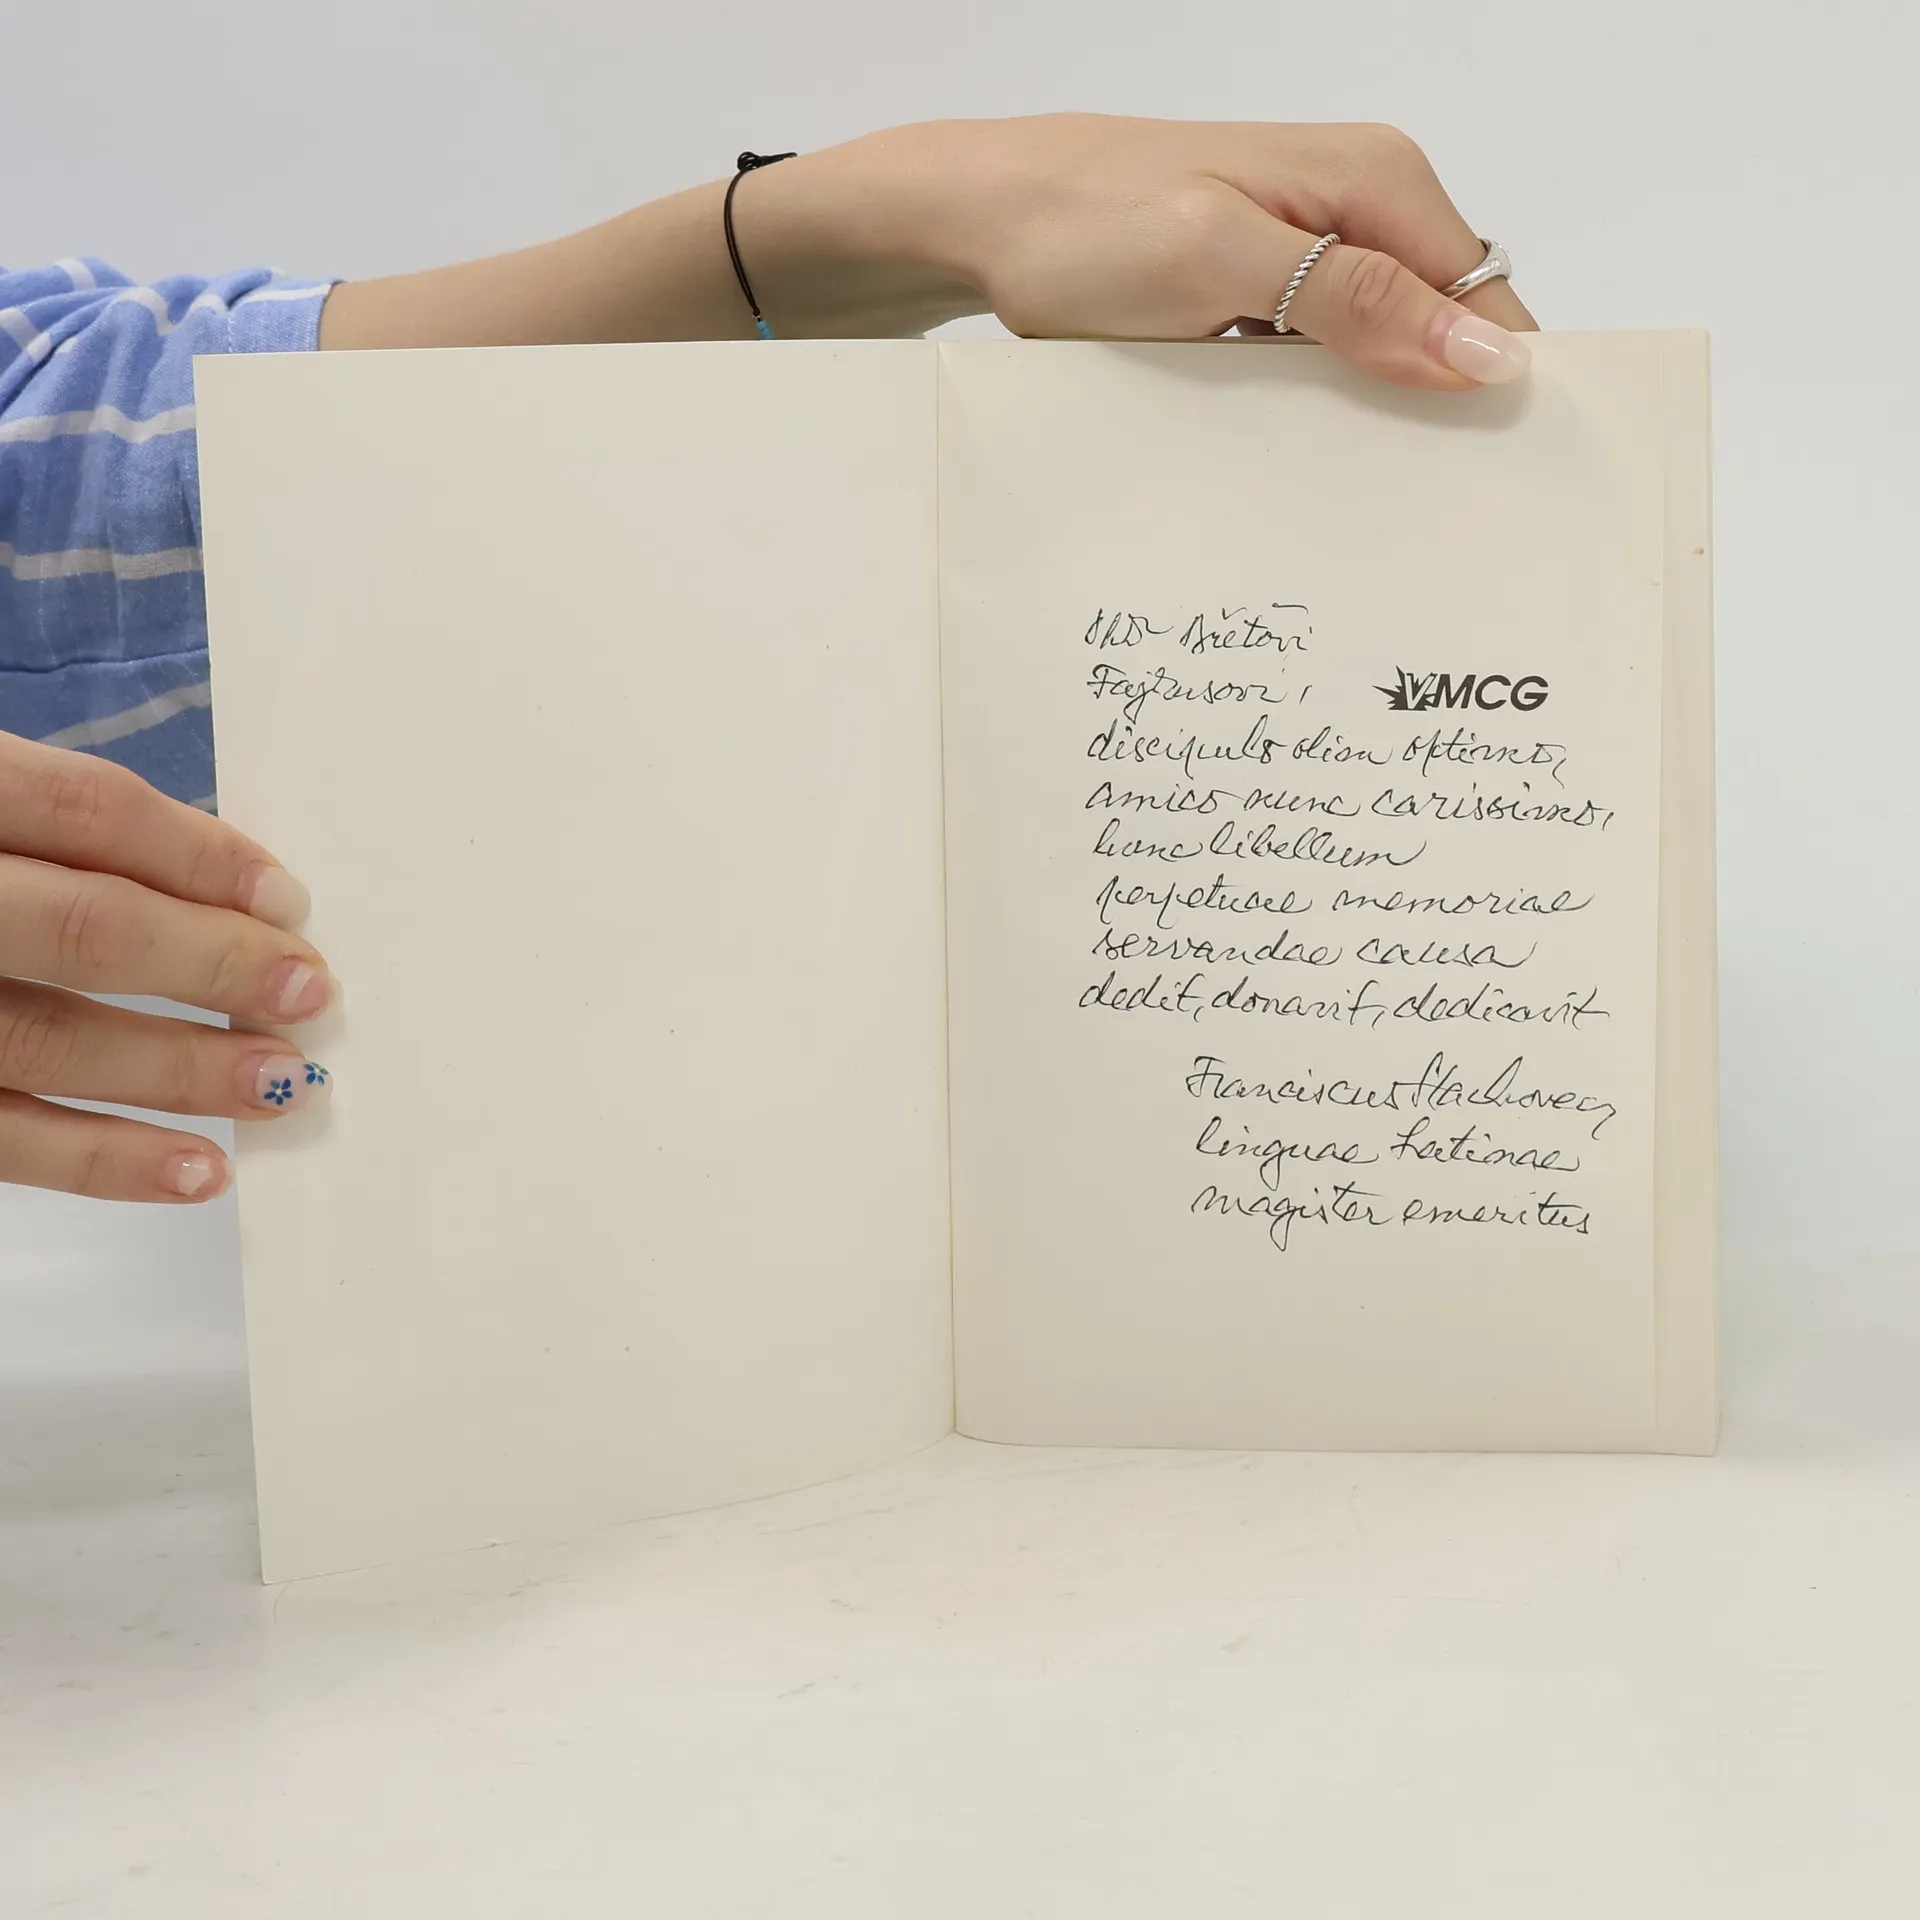 PhDr Břetovi
Fajkusovi,
VMCG
discipulo olim optimo,
amico nunc carissimo,
hunc libellum
perpetuae memoriae
servandae causa
dedit, donavit, dedicavit
Franciscus Stachovec,
linguae Latinae
magister emeritus